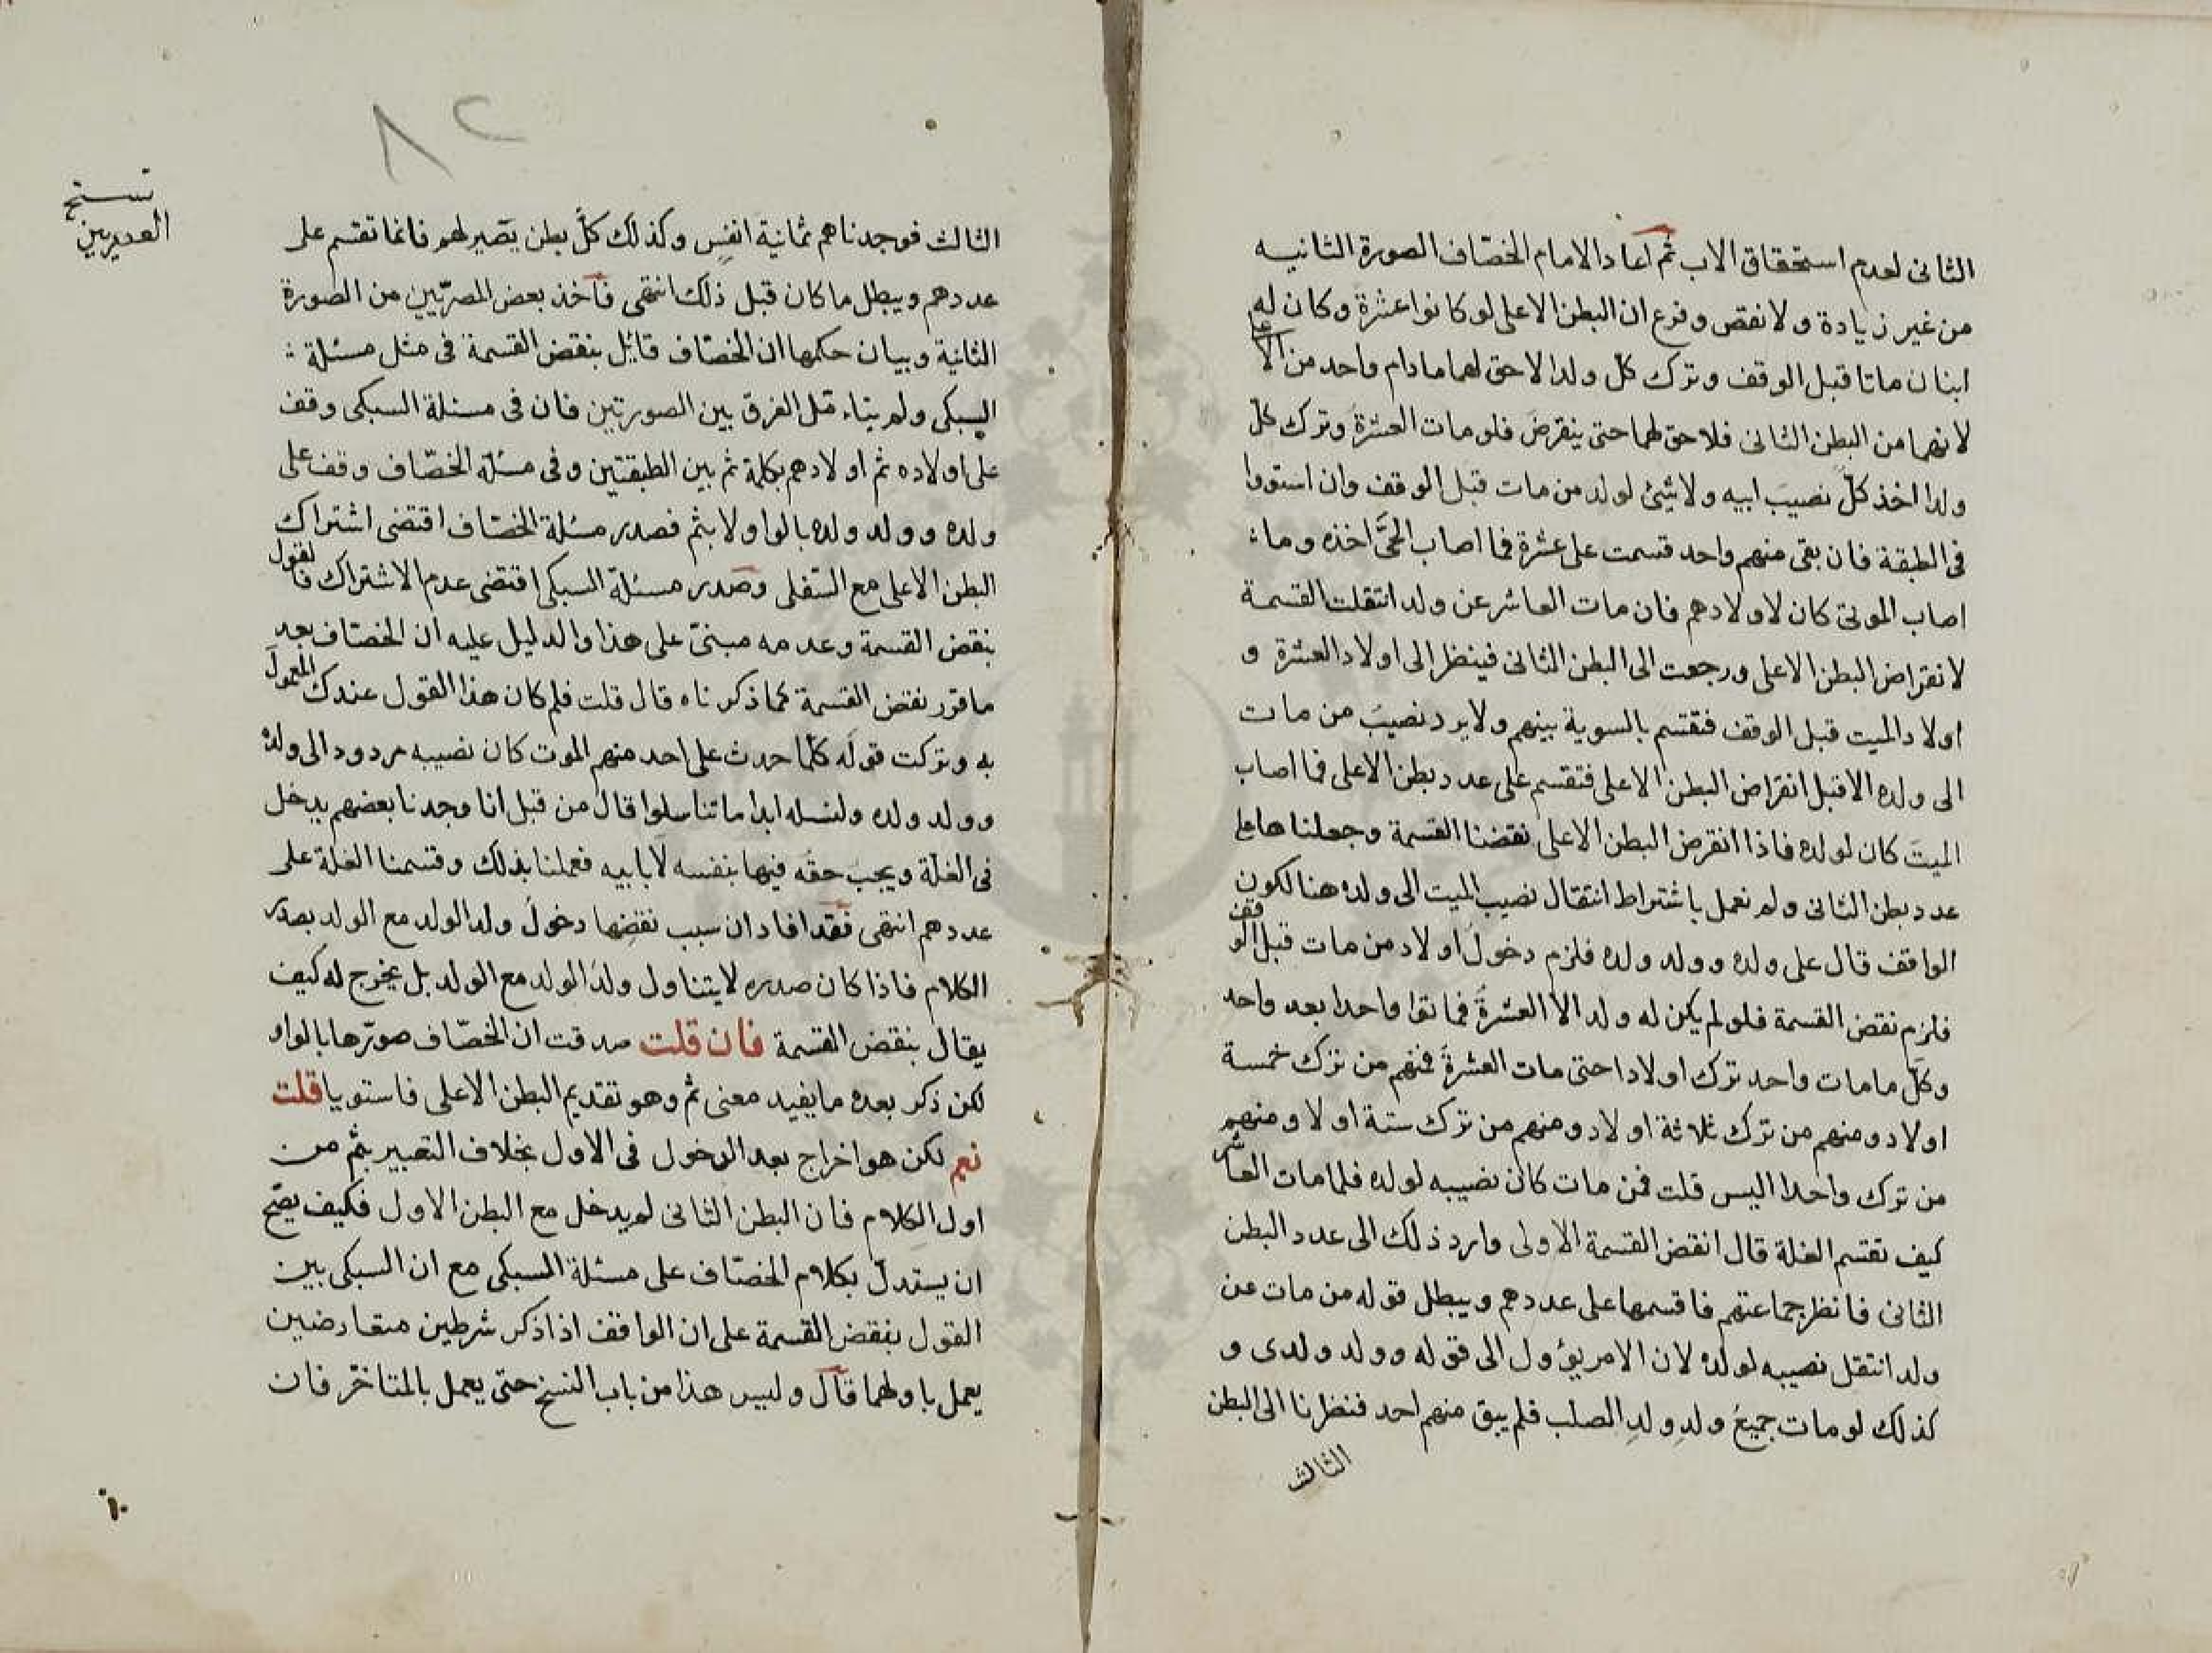 الثانى لعدم استحقاق الاب ثم اعاد الامام الخصاف الصورة الثانيه
من غير زيادة ولا نقص وفرع ان البطن الاعلى لو كانوا عشرة وكان له
ابنان ماتا قبل الوقف وترك كل ولدا لاحق لهما مادام واحد من الاعلى
لانهما من البطن الثانى فلا حق لهما حتى ينقرض فلو مات العشرة وترك كل
ولدا اخذ كل نصيب ابيه ولا شئ لولد من مات قبل الوقف وان استووا
فى الطبقة فان بقى منهم واحد قسمت على عشرة فما اصاب الحى اخذه وما
اصاب الموتى كان لاولادهم فان مات العاشر عن ولد انتقلت القسمة
لانقراض البطن الاعلى ورجعت الى البطن الثانى فينظر الى اولاد العشرة و
اولاد الميت قبل الوقف فتقسم بالسوية بينهم ولا يرد نصيب من مات
الى ولده الا قبل انقراض البطن الاعلى فتقسم على عدد بطن الاعلى فما اصاب
الميت كان لولده فاذا انقرض البطن الاعلى نقضنا القسمة وجعلناها على
عدد بطن الثانى ولم نعمل باشتراط انتقال نصيب الميت الى ولده هنا لكون
الواقف قال على ولده وولد ولده فلزم دخول اولاد من مات قبل الوقف
فلزم نقض القسمة فلو لم يكن له ولد الا العشرة فماتوا واحدا بعد واحد
وكل ما مات واحد ترك اولادا حتى مات العشرة فمنهم من ترك خمسة
اولاد ومنهم من ترك ثلاثة اولاد ومنهم من ترك ستة اولا ومنهم
من ترك واحدا اليس قلت فمن مات كان نصيبه لولده فلما مات العاشر
كيف تقسم الغلة قال انقض القسمة الاولى وارد ذلك الى عدد البطن
الثانى فانظر جماعتهم فاقسمها على عددهم ويبطل قوله من مات عن
ولد انتقل نصيبه لولده لان الامر يؤول الى قوله وولد ولدى و
كذلك لو مات جميع ولد ولد الصلب فلم يبق منهم احد فنظرنا الى البطن
الثالث
٨٢
الثالث فوجدناهم ثمانية انفس وكذلك كل بطن يصير لهم فانما تقسم على
عددهم ويبطل ما كان قبل ذلك انتهى فأخذ بعض المصريين من الصورة
الثانية وبيان حكمها ان الخصاف قائل بنقض القسمة فى مثل مسئلة
السبكى ولم يتاءمل الفرق بين الصورتين فان فى مسئلة السبكى وقف
على اولاده ثم اولادهم بكلمة ثم بين الطبقتين وفى مسئلة الخصاف وقف على
ولده وولد ولده بالواو لا بثم فصدر مسئلة الخصاف اقتضى اشتراك
البطن الاعلى مع السفلى وصدر مسئلة السبكى اقتضى عدم الاشتراك فالقول
بنقض القسمة وعدمه مبنى على هذا والدليل عليه ان الخصاف بعد
ما قرر نقض القسمة كما ذكرناه قال قلت فلم كان هذا القول عندك المعمول
به وتركت قوله كلما حدث على احد منهم الموت كان نصيبه مردودا الى ولده
وولد ولده ولنسله ابدا ما تناسلوا قال من قبل انا وجدنا بعضهم يدخل
فى الغلة ويجب حقه فيها بنفسه لا بابيه فعملنا بذلك وقسمنا الغلة على
عددهم انتهى فقد افاد ان سبب نقضها دخول ولد الولد مع الولد بصدر
الكلام فاذا كان صدره لا يتناول ولد الولد مع الولد بل يخرج له كيف
يقال بنقض القسمة فان قلت صدقت ان الخصاف صورها بالواو
لكن ذكر بعده ما يفيد معنى ثم وهو تقديم البطن الاعلى فاستويا قلت
نعم لكن هو اخراج بعد الدخول فى الاول بخلاف التعبير بثم من
اول الكلام فان البطن الثانى لم يدخل مع البطن الاول فكيف يصح
ان يستدل بكلام الخصاف على مسئلة السبكى مع ان السبكى بين
القول بنقض القسمة على ان الواقف اذا ذكر شرطين متعارضين
يعمل باولهما قال وليس هذا من باب النسخ حتى يعمل بالمتاخر فان